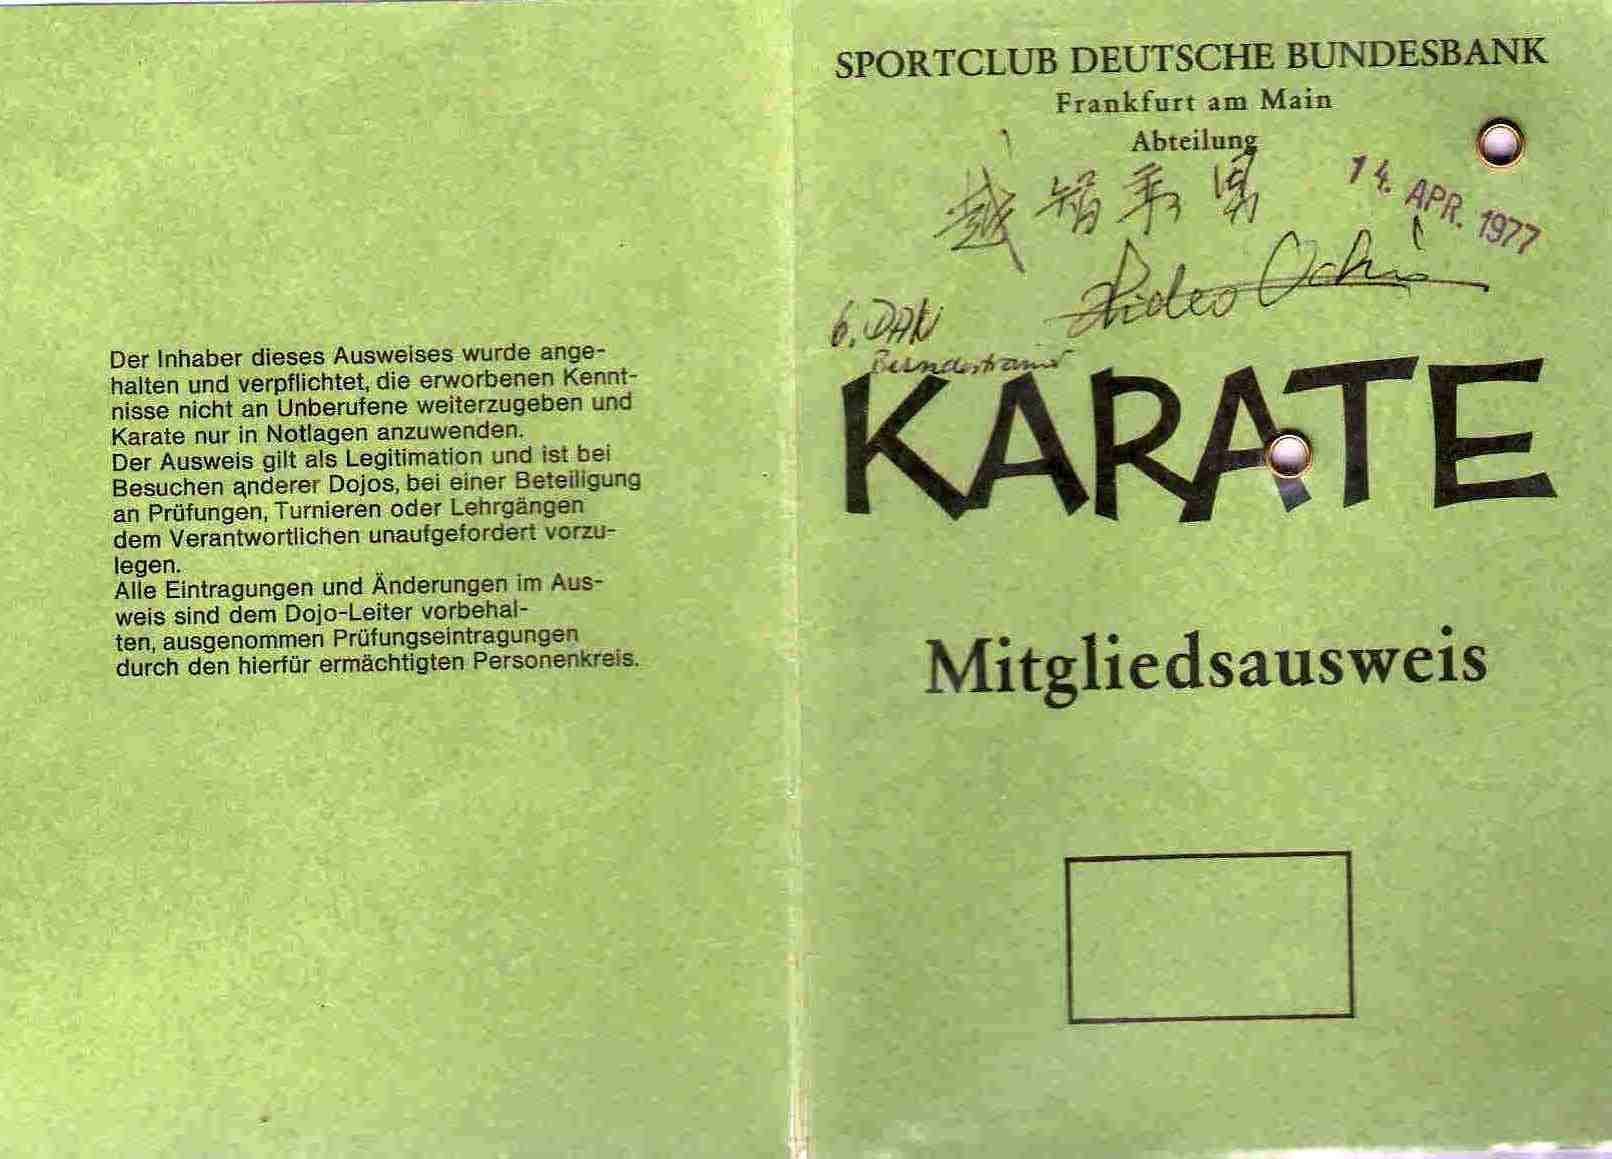 Der Inhaber dieses Ausweises wurde ange-
halten und verpflichtet, die erworbenen Kennt-
nisse nicht an Unberufene weiterzugeben und
Karate nur in Notlagen anzuwenden.
Der Ausweis gilt als Legitimation und ist bei
Besuchen anderer Dojos, bei einer Beteiligung
an Prüfungen, Turnieren oder Lehrgängen
dem Verantwortlichen unaufgefordert vorzu-
legen.
Alle Eintragungen und Änderungen im Aus-
weis sind dem Dojo-Leiter vorbehal-
ten, ausgenommen Prüfungseintragungen
durch den hierfür ermächtigten Personenkreis.
SPORTCLUB DEUTSCHE BUNDESBANK
Frankfurt am Main
Abteilung
越智秀男
14. APR. 1977
Hideo Ochi
6. DAN
Bundestrainer
KARATE
Mitgliedsausweis